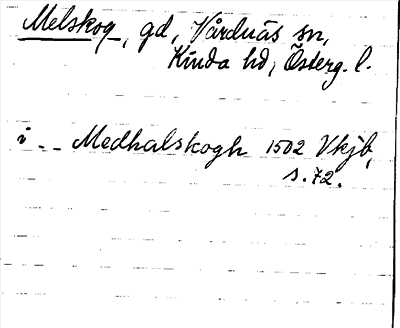 Melskog, gd, Vårdnäs sn,
Kinda hd, Österg. l.
i - - Medhalskogh 1502 Vkjb,
s. 72.